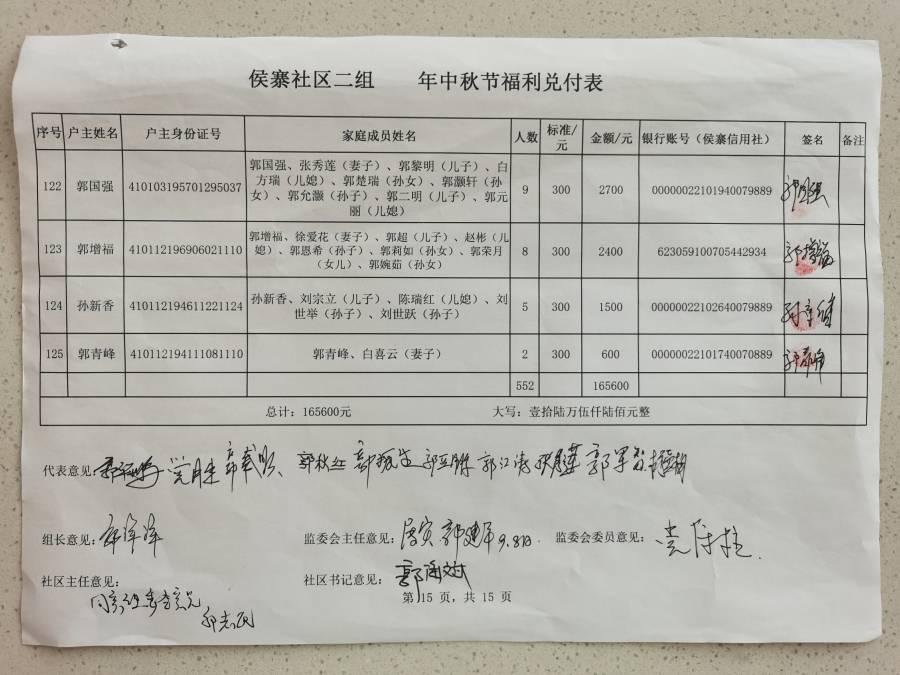 侯寨社区二组 年中秋节福利兑付表
序号 户主姓名 户主身份证号 家庭成员姓名 人数 标准/元 金额/元 银行账号（侯寨信用社） 签名 备注
122 郭国强 410103195701295037 郭国强、张秀莲（妻子）、郭黎明（儿子）、白 9 300 2700 00000022101940079889 郭国强
方瑞（儿媳）、郭楚瑞（孙女）、郭灏轩（孙
女）、郭允灏（孙子）、郭二明（儿子）、郭元
丽（儿媳）
123 郭增福 410112196906021110 郭增福、徐爱花（妻子）、郭超（儿子）、赵彬（儿 8 300 2400 623059100705442934 郭增福
媳）、郭恩希（孙子）、郭莉如（孙女）、郭荣月
（女儿）、郭婉茹（孙女）
124 孙新香 410112194611221124 孙新香、刘宗立（儿子）、陈瑞红（儿媳）、刘 5 300 1500 00000022102640079889 孙新香
世举（孙子）、刘世跃（孙子）
125 郭青峰 410112194111081110 郭青峰、白喜云（妻子） 2 300 600 00000022101740070889 郭青峰
552 165600
总计：165600元 大写：壹拾陆万伍仟陆佰元整
代表意见： 郭秋红 郭江涛 郭军
组长意见：
监委会主任意见： 郭建平 9.8日
监委会委员意见：
社区主任意见：
社区书记意见：
第 15 页，共 15 页